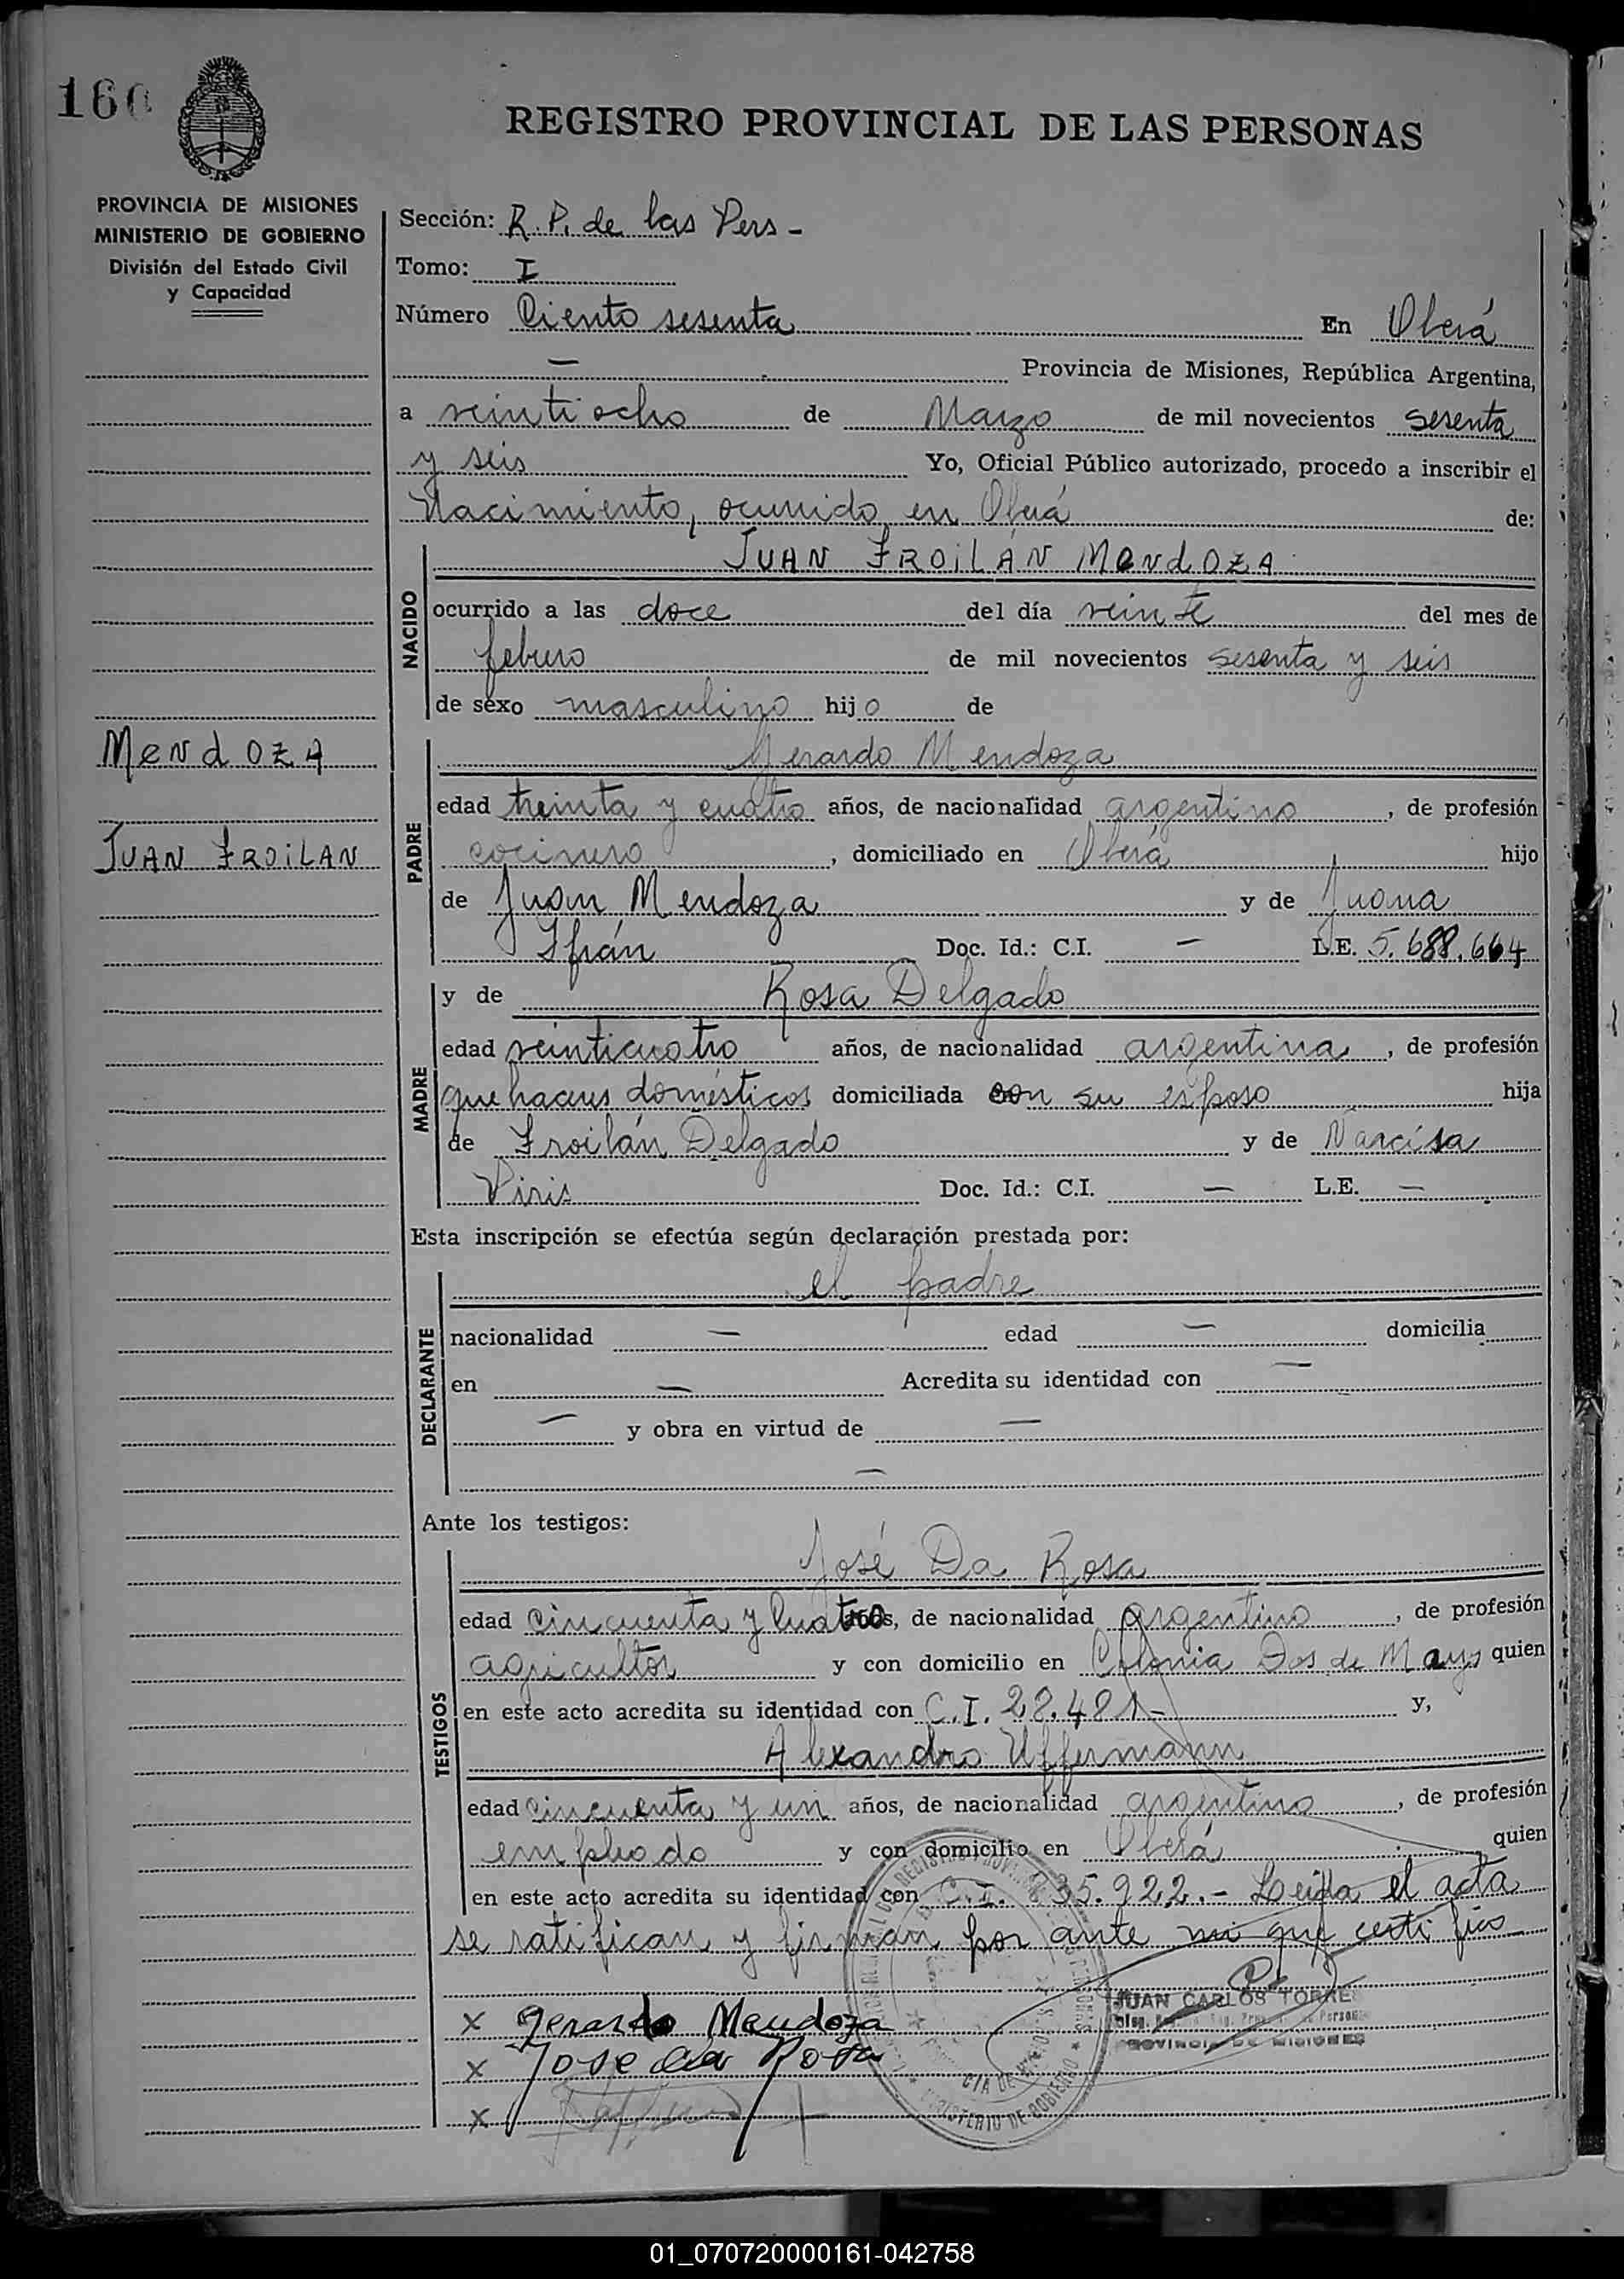 160
REGISTRO PROVINCIAL DE LAS PERSONAS
PROVINCIA DE MISIONES
MINISTERIO DE GOBIERNO
División del Estado Civil
y Capacidad
Mendoza
Juan Froilan
Sección: R. P. de las Pers -
Tomo: I
Número Ciento sesenta En Oberá
— Provincia de Misiones, República Argentina,
a veintiocho de Marzo de mil novecientos sesenta
y seis Yo, Oficial Público autorizado, procedo a inscribir el
Nacimiento, ocurrido en Oberá de:
NACIDO
Juan Froilán Mendoza
ocurrido a las doce del día veinte del mes de
febrero de mil novecientos sesenta y seis
de sexo masculino hijo de
PADRE
Gerardo Mendoza
edad treinta y cuatro años, de nacionalidad argentino, de profesión
cocinero, domiciliado en Oberá hijo
de Juan Mendoza y de Juana
Ifrán Doc. Id.: C.I. — L.E. 5.688.664
MADRE
y de Rosa Delgado
edad veinticuatro años, de nacionalidad argentina, de profesión
quehaceres domésticos domiciliada con su esposo hija
de Froilán Delgado y de Narcisa
Piris Doc. Id.: C.I. — L.E. —
Esta inscripción se efectúa según declaración prestada por:
DECLARANTE
el padre
nacionalidad — edad — domicilia
en — Acredita su identidad con —
— y obra en virtud de —
—
Ante los testigos:
TESTIGOS
José Da Rosa
edad cincuenta y cuatro años, de nacionalidad argentino, de profesión
agricultor y con domicilio en Colonia Dos de Mayo quien
en este acto acredita su identidad con C.I. 28.481- y,
Alexandro Uffermann
edad cincuenta y un años, de nacionalidad argentino, de profesión
empleado y con domicilio en Oberá quien
en este acto acredita su identidad con C.I. 35.922.- Leída el acta
se ratifican y firman por ante mi que certifico
x Gerardo Mendoza
JUAN CARLOS TORRES
PROVINCIA DE MISIONES
x Jose da Rosa
x
MINISTERIO DE GOBIERNO
01_070720000161-042758